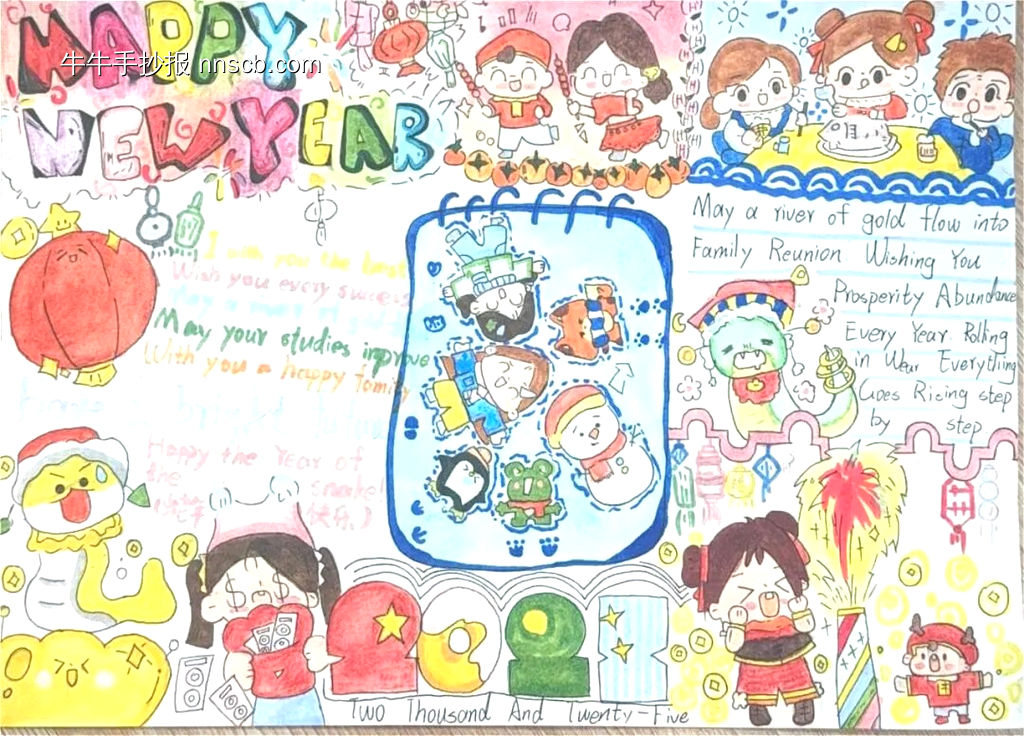 HAPPY
牛牛手抄报 nnscb.com
NEW YEAR
May a river of gold flow into
Family Reunion Wishing You
Prosperity Abundance
Every Year Rolling
in Wear Everything
Goes Rising step
by step
I wish you the best
Wish you every success
May your studies improve
With you a happy family
Happy the Year of
the snake!
快乐)
Two Thousand And Twenty-Five